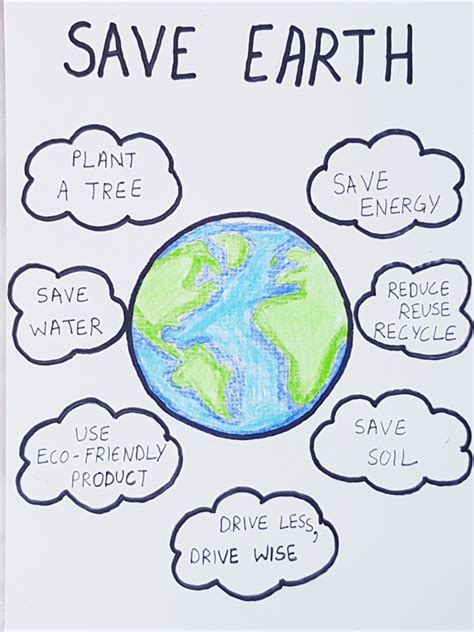 SAVE EARTH
PLANT
A TREE
SAVE
ENERGY
SAVE
WATER
REDUCE
REUSE
RECYCLE
USE
ECO-FRIENDLY
PRODUCT
SAVE
SOIL
DRIVE LESS,
DRIVE WISE